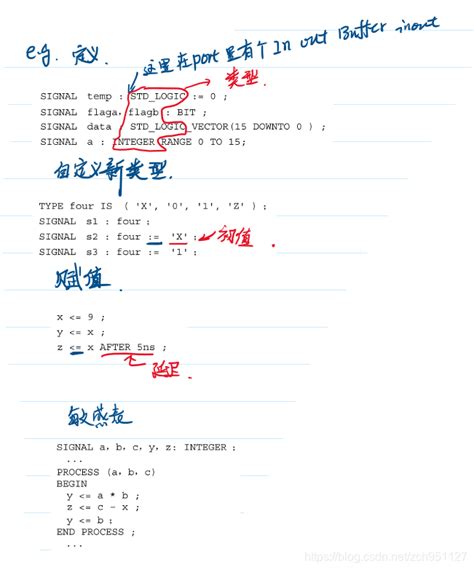 e.g. 定义 这里在port里有个In out Buffer inout
类型
SIGNAL temp : STD_LOGIC := 0 ;
SIGNAL flaga, flagb : BIT ;
SIGNAL data : STD_LOGIC_VECTOR(15 DOWNTO 0 ) ;
SIGNAL a : INTEGER RANGE 0 TO 15;
自定义新类型.
TYPE four IS ( 'X', '0', '1', 'Z' ) ;
SIGNAL s1 : four ;
SIGNAL s2 : four := 'X' ; 初值
SIGNAL s3 : four := '1' ;
赋值.
x <= 9 ;
y <= x ;
z <= x AFTER 5ns ;
延迟
敏感表
SIGNAL a, b, c, y, z: INTEGER ;
...
PROCESS (a, b, c)
BEGIN
y <= a * b ;
z <= c - x ;
y <= b ;
END PROCESS ;
...
https://blog.csdn.net/zch951127